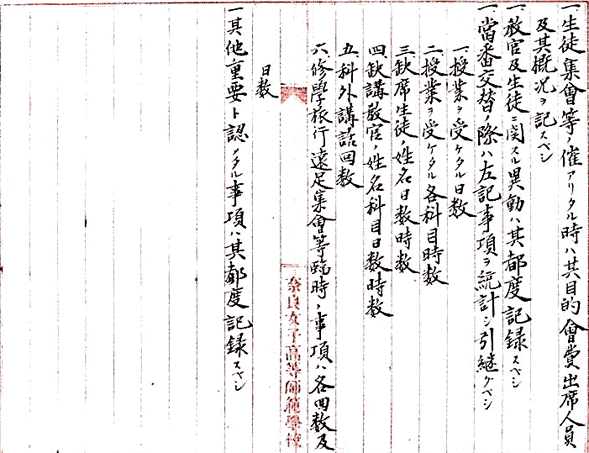 一、生徒集會等ノ催アリタル時ハ其目的會費出席人員
及其概況ヲ記スベシ
一、教官及生徒ニ関スル異動ハ其都度記録スベシ
一、當番交替ノ際ハ左記事項ヲ統計シ引継グベシ
一、授業ヲ受ケタル日数
二、授業ヲ受ケタル各科目時数
三、缺席生徒ノ姓名日数時数
四、缺講教官ノ姓名科目日数時数
五、科外講話回数
六、修學旅行遠足集會等臨時ノ事項ハ各回数及
日数
奈良女子高等師範學校
一、其他重要ト認メタル事項ハ其都度記録スベシ